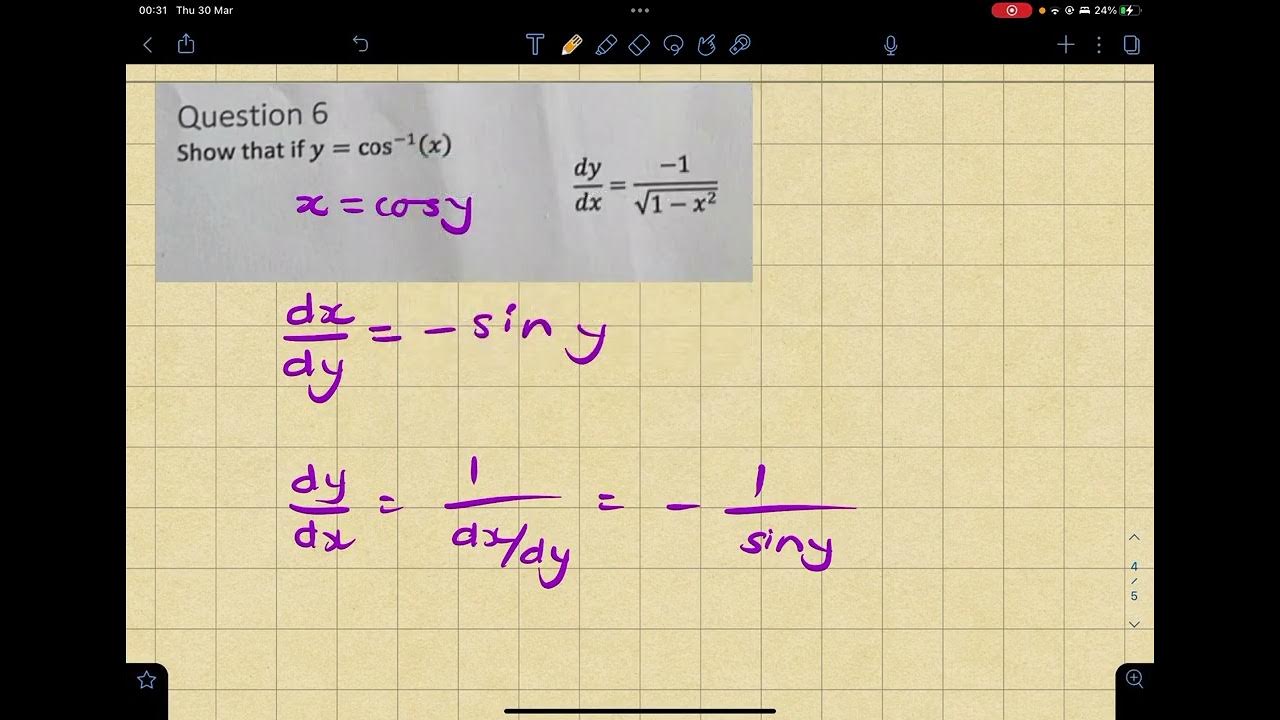 00:31 Thu 30 Mar
24%
Question 6
Show that if y = cos⁻¹(x)
dy/dx = -1/√(1 − x²)
x = cos y
dx/dy = - sin y
dy/dx = 1/(dx/dy) = - 1/sin y
4
/
5